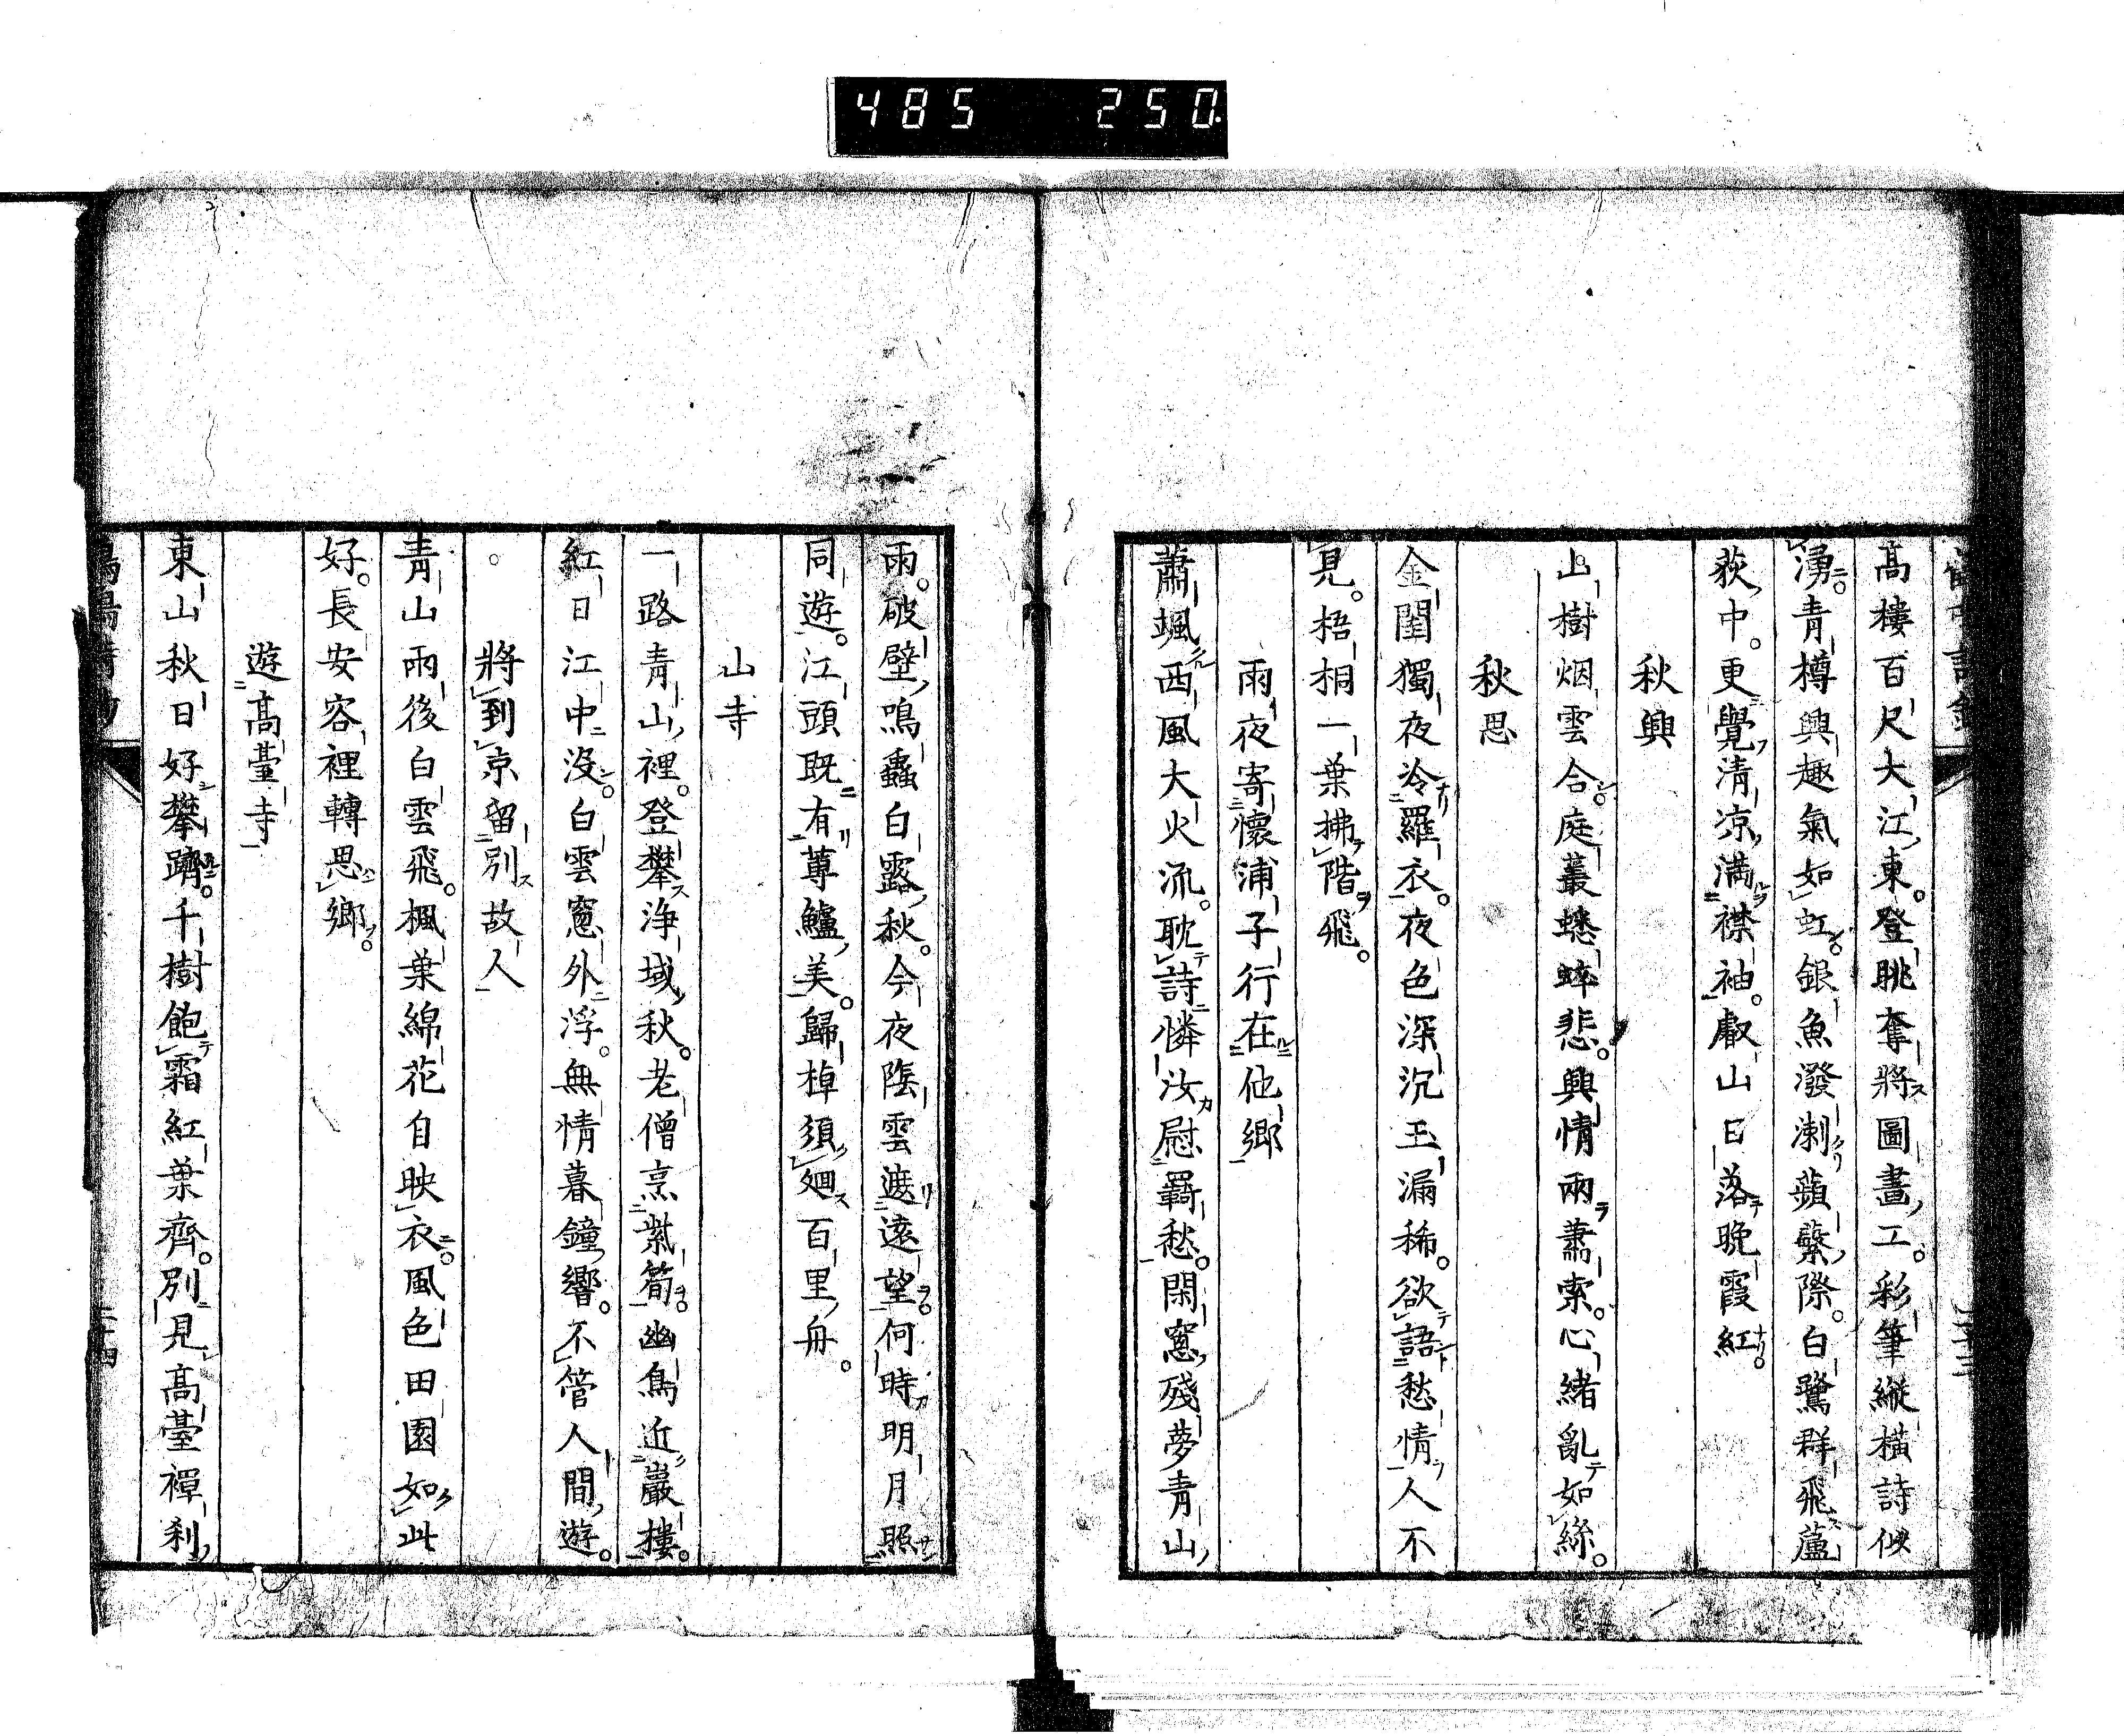 485 250.
高樓百尺大江東。登眺奪將圖畫工。彩筆縱橫詩似
湧。青樽興趣氣如虹。銀魚潑溂蘋蘩際。白鷺群飛蘆
荻中。更覺清凉滿襟袖。叡山日落晚霞紅。
秋興
山樹烟雲合。庭叢蟋蟀悲。興情兩蕭索。心緒亂如絲。
秋思
金閨獨夜冷羅衣。夜色深沉玉漏稀。欲語愁情人不
見。梧桐一葉拂階飛。
雨夜寄懷浦子行在他鄉
蕭颯西風大火流。耽詩憐汝慰羇愁。閑窓殘夢青山
雨。破壁鳴蟲白露秋。今夜陰雲遮遠望。何時明月照
同遊。江頭既有蓴鱸美。歸棹須廻百里舟。
山寺
一路青山裡。登攀浄域秋。老僧烹紫筍。幽鳥近巖樓。
紅日江中沒。白雲窓外浮。無情暮鐘響。不管人間遊。
將到京留別故人
青山雨後白雲飛。楓葉綿花自映衣。風色田園如此
好。長安容裡轉思鄉。
遊高臺寺
東山秋日好攀躋。千樹飽霜紅葉齊。別見高臺禪刹
二十四